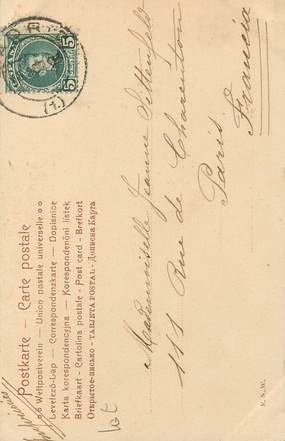 Postkarte — Carte postale
Weltpostverein — Union postale universelle
Levelező-Lap — Correspondenzkarte — Dopisnice
Karta korespondencyjna — Korespondenční lístek
Briefkaart - Cartolina postale - Post card - Brefkort
Открытое-письмо - TARJETA POSTAL - Дописна Карта
5 5
(1.)
Mademoiselle Jeanne
111 Rue de Charenton
Paris
Francia